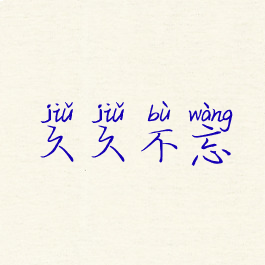 jiǔ jiǔ bù wàng
久久不忘